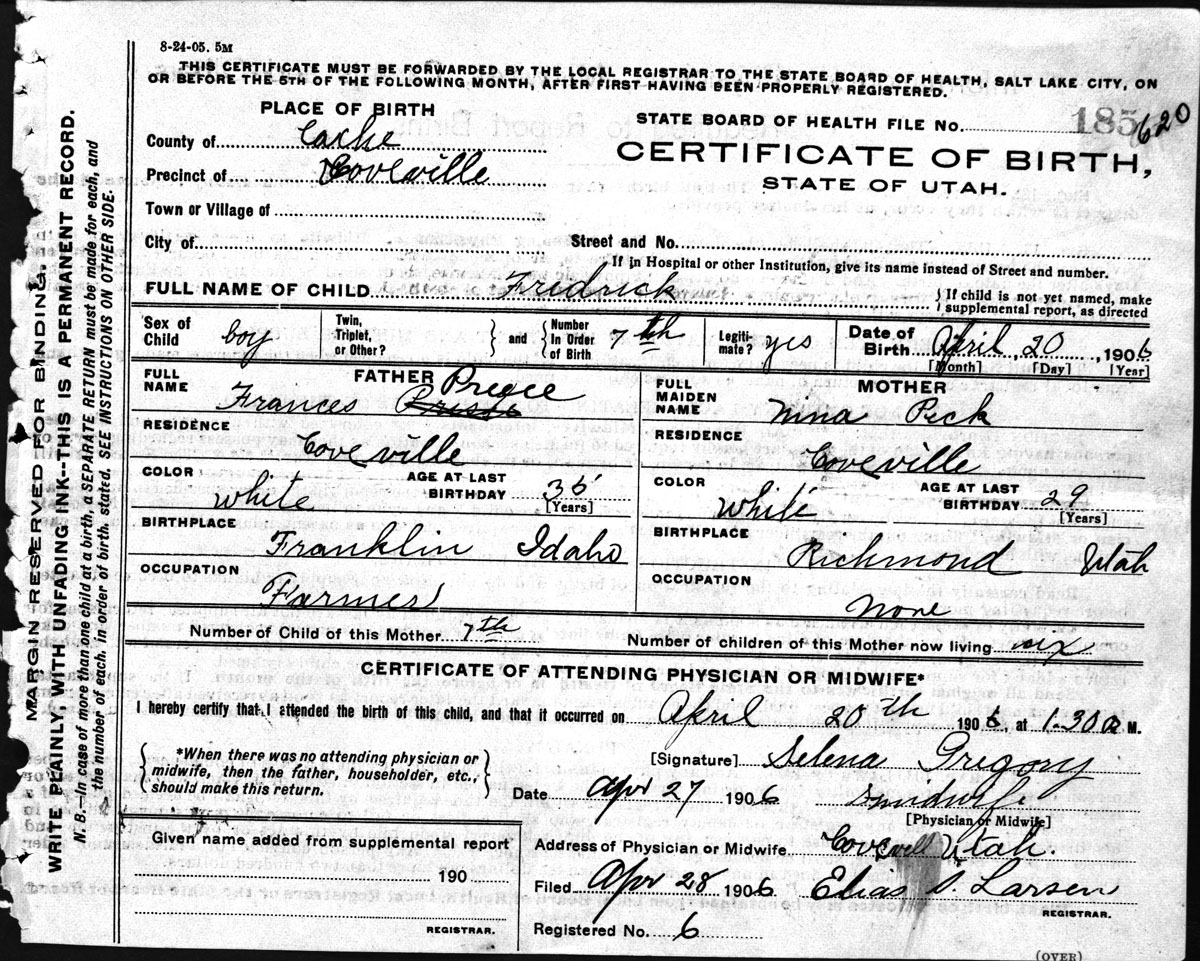 8-24-05. 5M
THIS CERTIFICATE MUST BE FORWARDED BY THE LOCAL REGISTRAR TO THE STATE BOARD OF HEALTH, SALT LAKE CITY, ON
OR BEFORE THE 5TH OF THE FOLLOWING MONTH, AFTER FIRST HAVING BEEN PROPERLY REGISTERED.
PLACE OF BIRTH
County of Cache
Precinct of Coveville
Town or Village of
City of
STATE BOARD OF HEALTH FILE No. 185 620
CERTIFICATE OF BIRTH,
STATE OF UTAH.
Street and No.
If in Hospital or other Institution, give its name instead of Street and number.
FULL NAME OF CHILD Fridrick
If child is not yet named, make
supplemental report, as directed
Sex of Child boy
Twin, Triplet, or Other? and Number In Order of Birth 7th
Legitimate? yes
Date of Birth April 20, 1906
[Month] [Day] [Year]
FATHER
FULL NAME Frances Preece
RESIDENCE Coveville
COLOR White
AGE AT LAST BIRTHDAY 35 [Years]
BIRTHPLACE Franklin Idaho
OCCUPATION Farmer
MOTHER
FULL MAIDEN NAME Nina Peck
RESIDENCE Coveville
COLOR White
AGE AT LAST BIRTHDAY 29 [Years]
BIRTHPLACE Richmond Utah
OCCUPATION None
Number of Child of this Mother 7th
Number of children of this Mother now living six
CERTIFICATE OF ATTENDING PHYSICIAN OR MIDWIFE*
I hereby certify that I attended the birth of this child, and that it occurred on April 20th 1906, at 1.30 a M.
*When there was no attending physician or
midwife, then the father, householder, etc.,
should make this return.
[Signature] Selena Gregory
Date Apr 27 1906 midwife
[Physician or Midwife]
Given name added from supplemental report
190
REGISTRAR.
Address of Physician or Midwife Utah.
Filed Apr 28 1906 Elias Larsen
REGISTRAR.
Registered No. 6
(OVER)
MARGIN RESERVED FOR BINDING.
WRITE PLAINLY, WITH UNFADING INK--THIS IS A PERMANENT RECORD.
N. B.—In case of more than one child at a birth, a SEPARATE RETURN must be made for each, and
the number of each, in order of birth, stated. SEE INSTRUCTIONS ON OTHER SIDE.